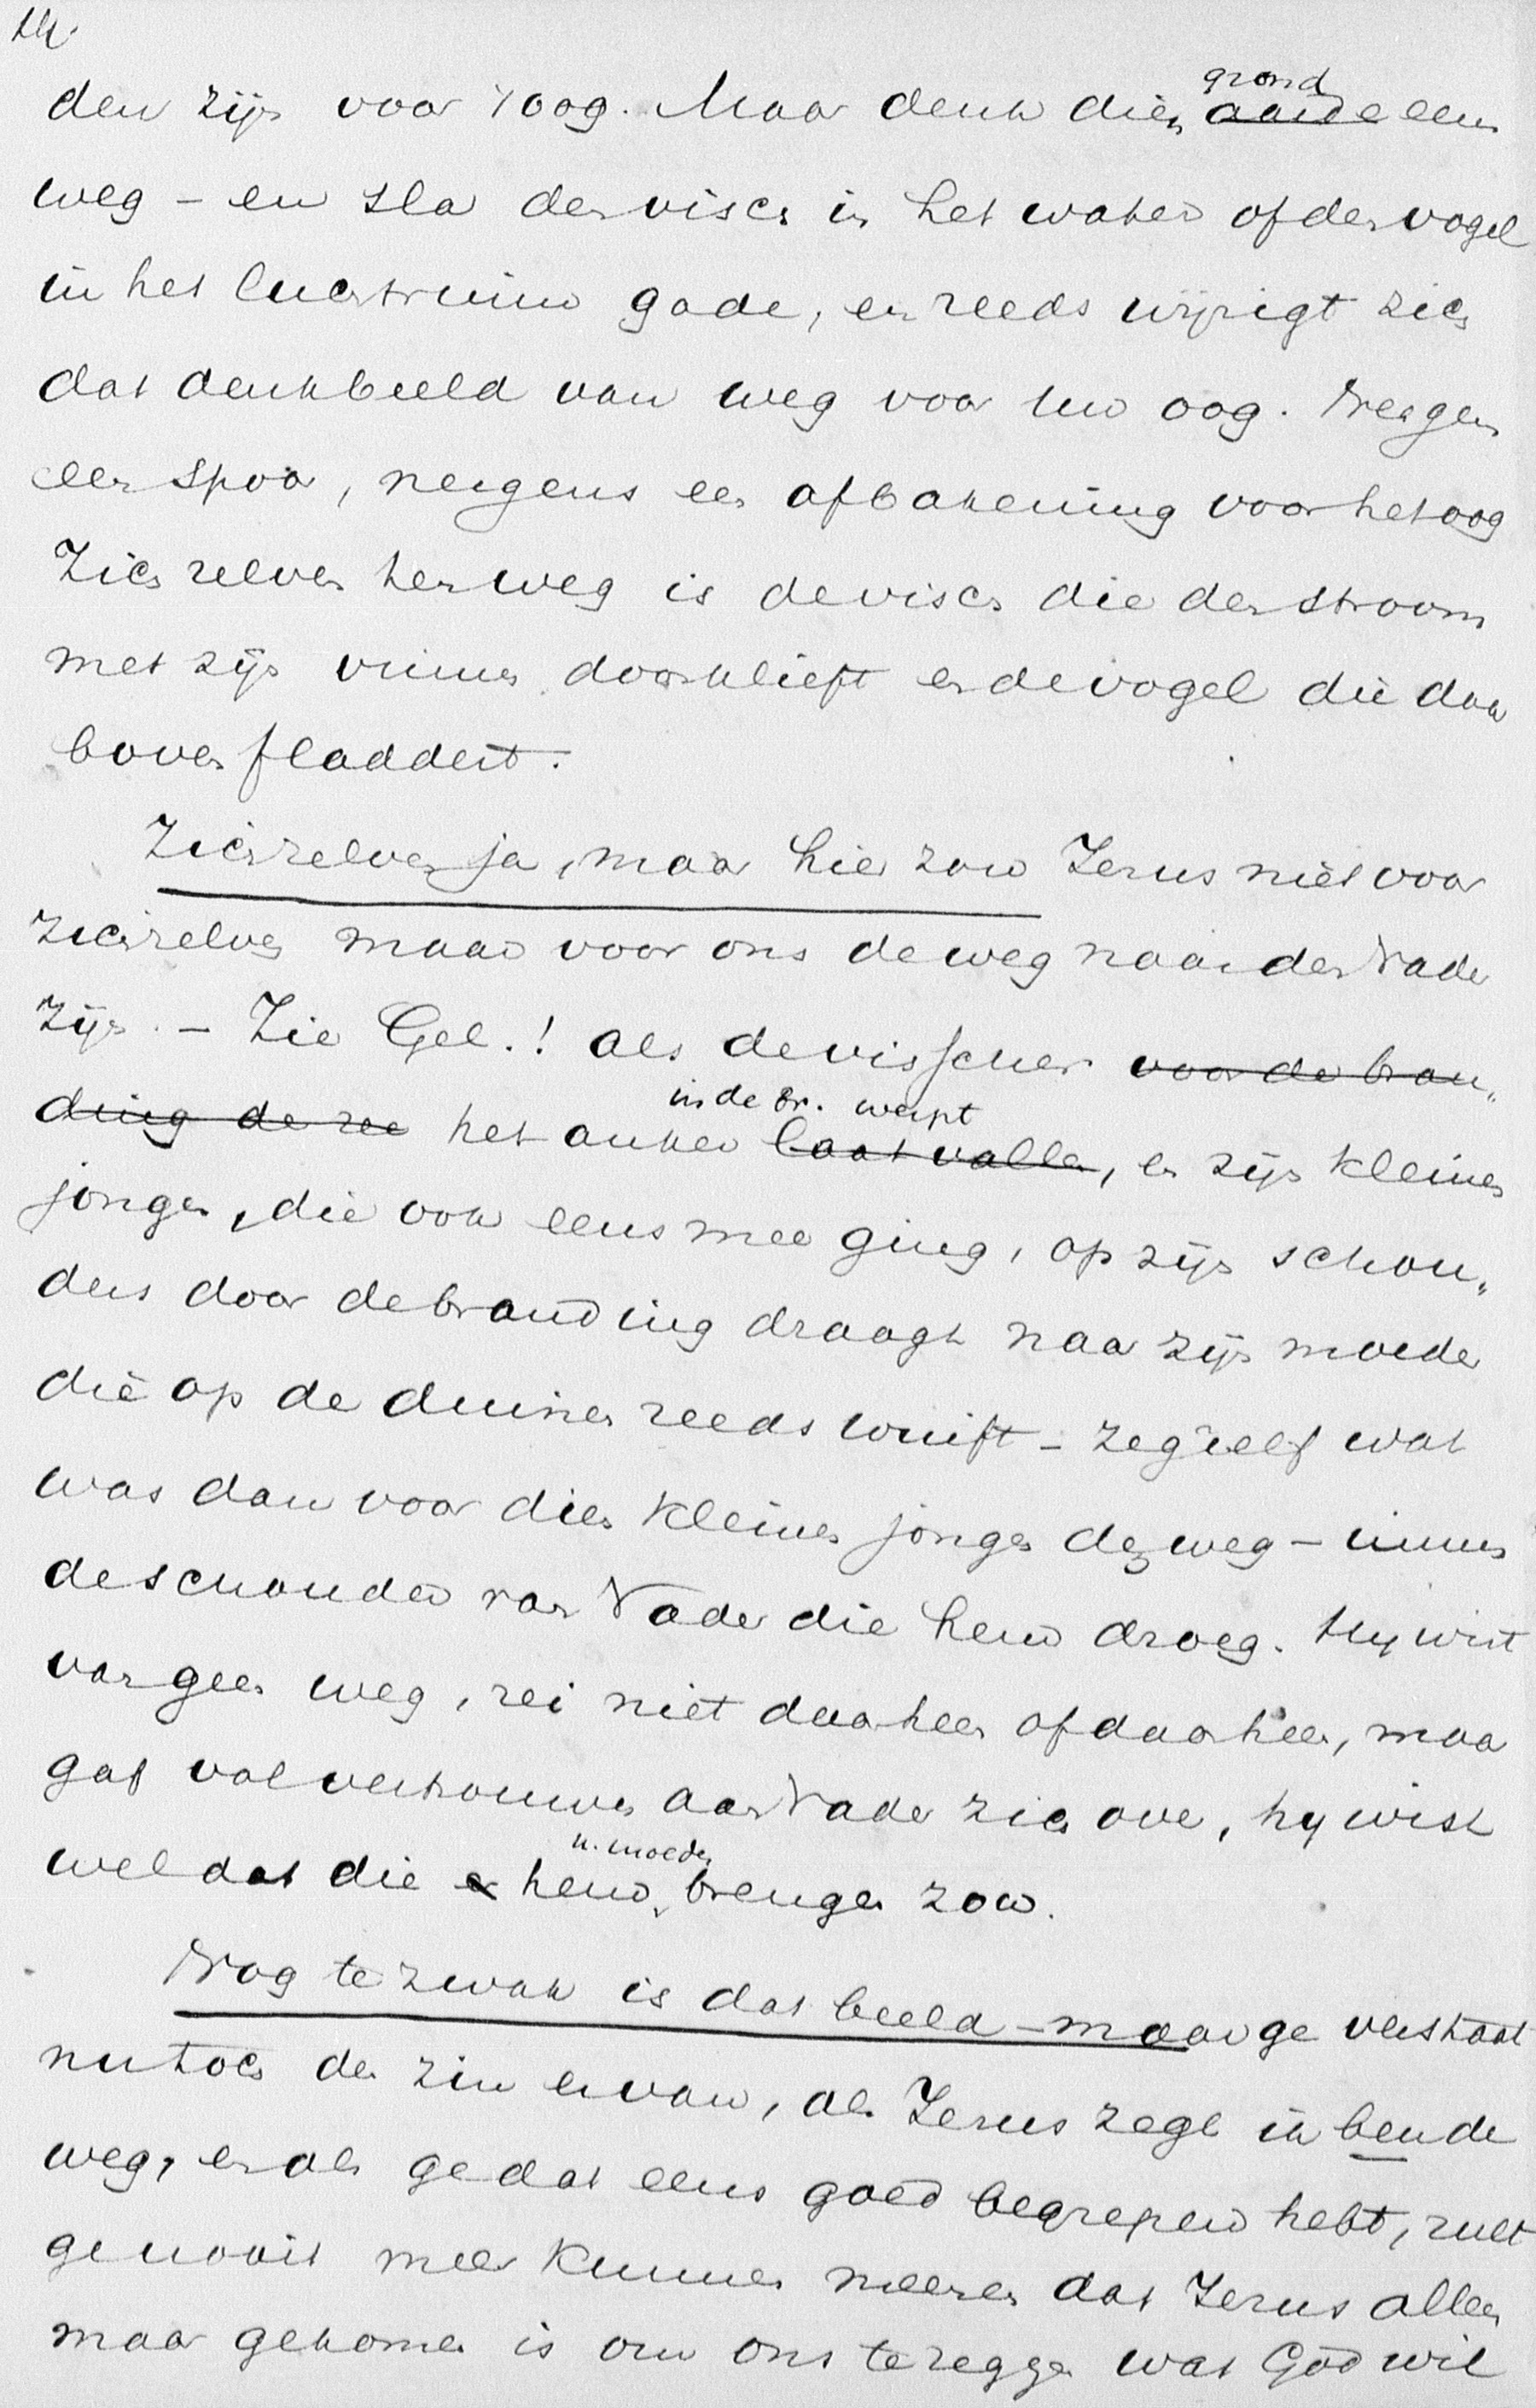 14.
den zijn voor 't oog. Maar denk dien grond ~~aarde~~ eens
weg – en sla den visch in het water of den vogel
in het luchtruim gade, en reeds wijzigt zich
dat denkbeeld van weg voor uw oog. Nergens
een spoor, nergens een afbakening voor het oog
Zich zelven ten weg is de visch die den stroom
met zijn vinnen doorklieft en de vogel die daar
boven fladdert.
Zichzelven ja, maar hier zou Jezus niet voor
zichzelven maar voor ons de weg naar den Vader
zijn. – Zie Gel.! als de visscher ~~voor de bran„~~
~~ding de zee~~ het anker in de br. werpt ~~laat vallen~~, en zijn kleinen
jongen, die ook eens mee ging, op zijn schou„
ders door de branding draagt naar zijn moeder
die op de duinen reeds wuift – zeg zelf wat
was dan voor dien kleinen jongen de weg – immers
de schouder van Vader die hem droeg. Hij wist
van geen weg, zei niet daarheen of daarheen, maar
gaf vol vertrouwen aan Vader zich over, hij wist
wel dat die ~~er~~ hem n. moeder brengen zou.
Nog te zwak is dat beeld – maar ge verstaat
nu toch den zin ervan, als Jezus zegt ik ben de
weg, en als ge dat eens goed begrepen hebt, zult
ge nooit meer kunnen meenen dat Jezus alleen
maar gekomen is om ons te zeggen wat God wil